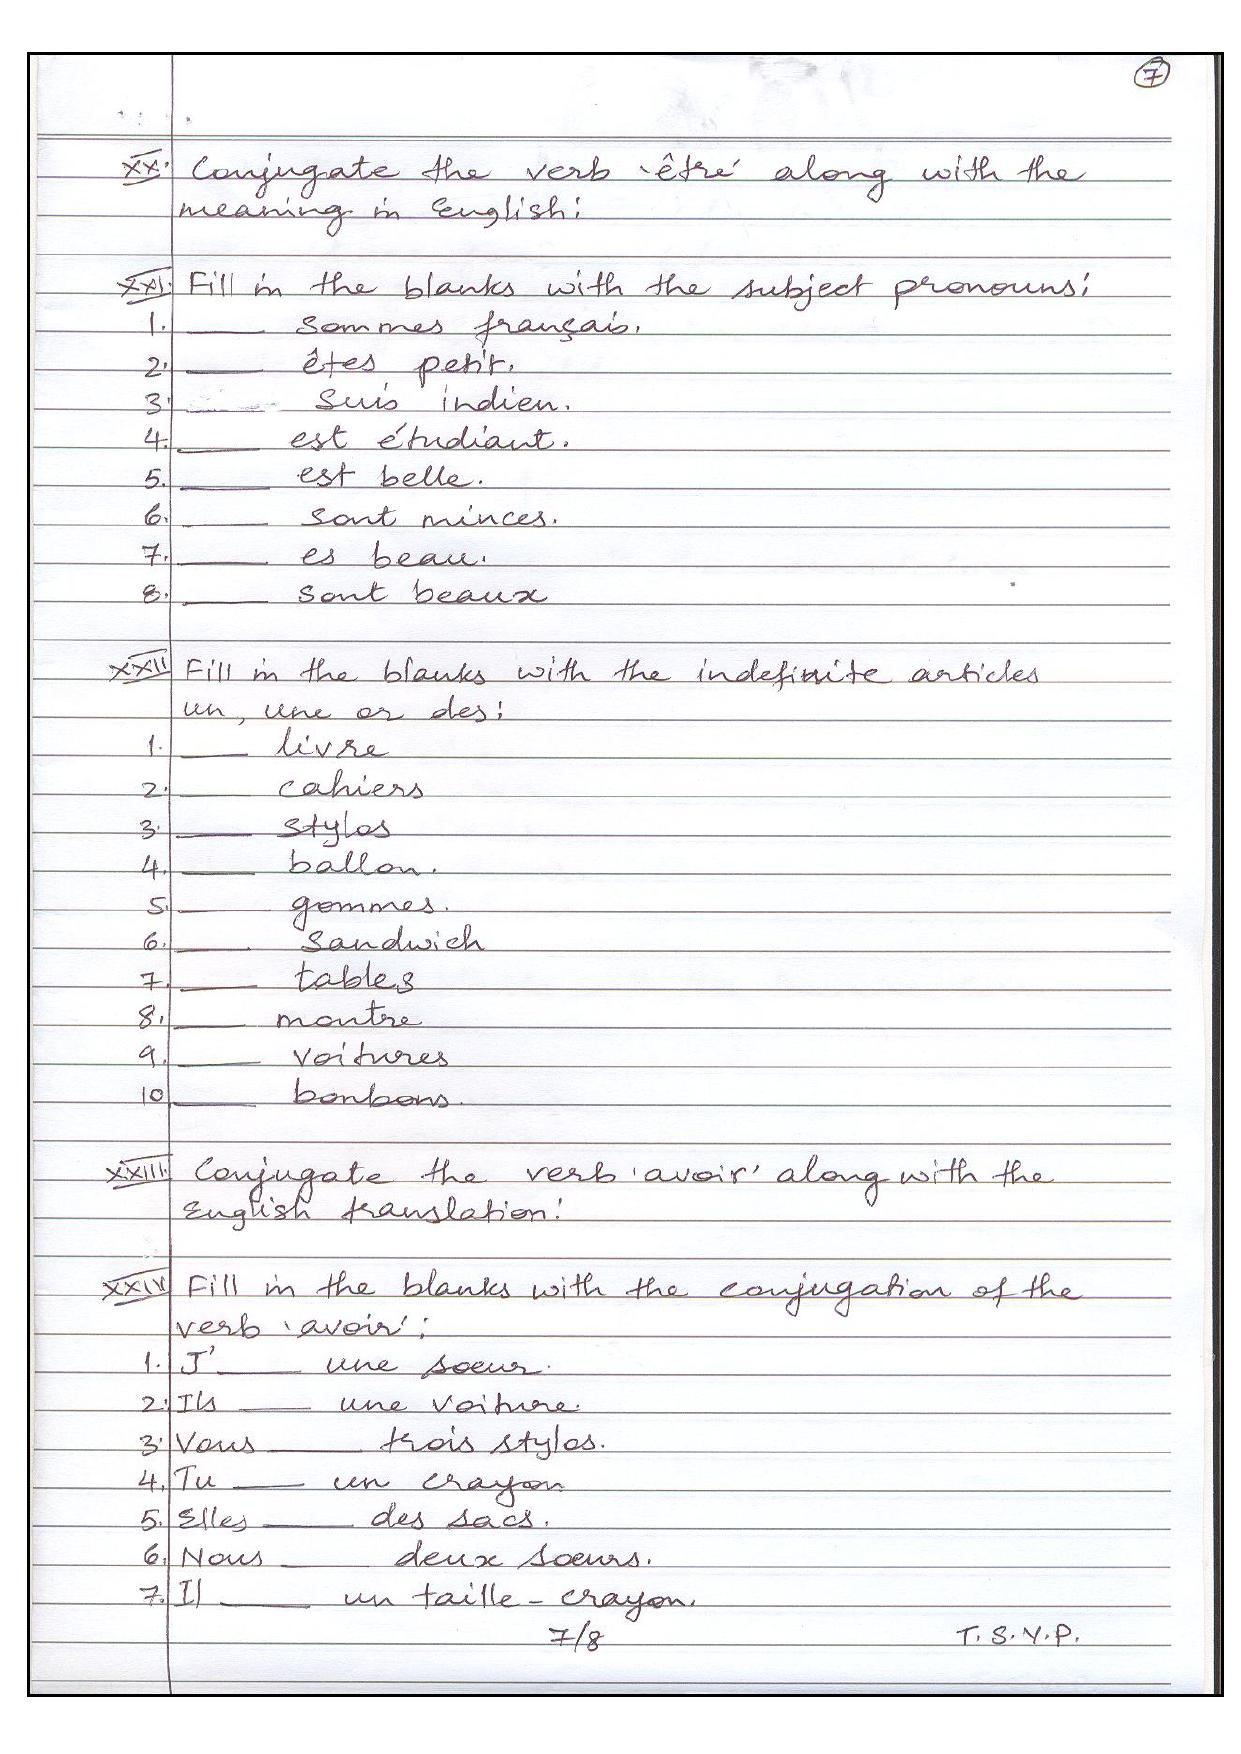 7
XX. Conjugate the verb 'être' along with the
meaning in English:
XXI. Fill in the blanks with the subject pronouns:
1. ____ sommes français.
2. ____ êtes petit.
3. ____ suis indien.
4. ____ est étudiant.
5. ____ est belle.
6. ____ sont minces.
7. ____ es beau.
8. ____ sont beaux
XXII Fill in the blanks with the indefinite articles
un, une or des:
1. ____ livre
2. ____ cahiers
3. ____ stylos
4. ____ ballon.
5. ____ gommes.
6. ____ sandwich
7. ____ tables
8. ____ montre
9. ____ voitures
10 ____ bonbons.
XXIII. Conjugate the verb 'avoir' along with the
English translation:
XXIV Fill in the blanks with the conjugation of the
verb 'avoir':
1. J' ____ une soeur.
2. Ils ____ une voiture.
3. Vous ____ trois stylos.
4. Tu ____ un crayon
5. Elles ____ des sacs.
6. Nous ____ deux soeurs.
7. Il ____ un taille-crayon.
7/8 T.S.V.P.